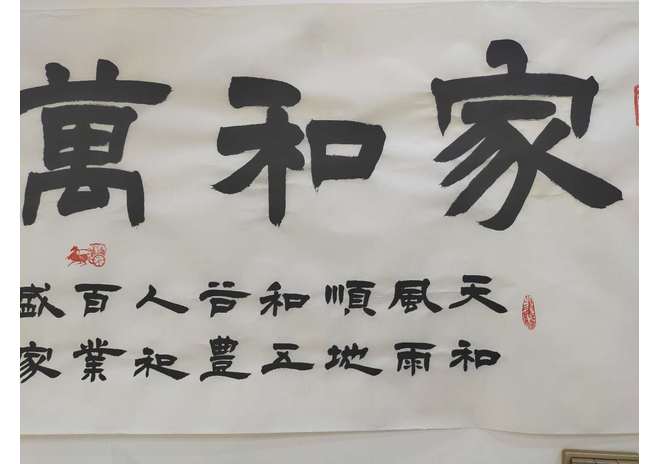 家和萬
天和
風雨
順地
和五
谷豊
人和
百業
盛家